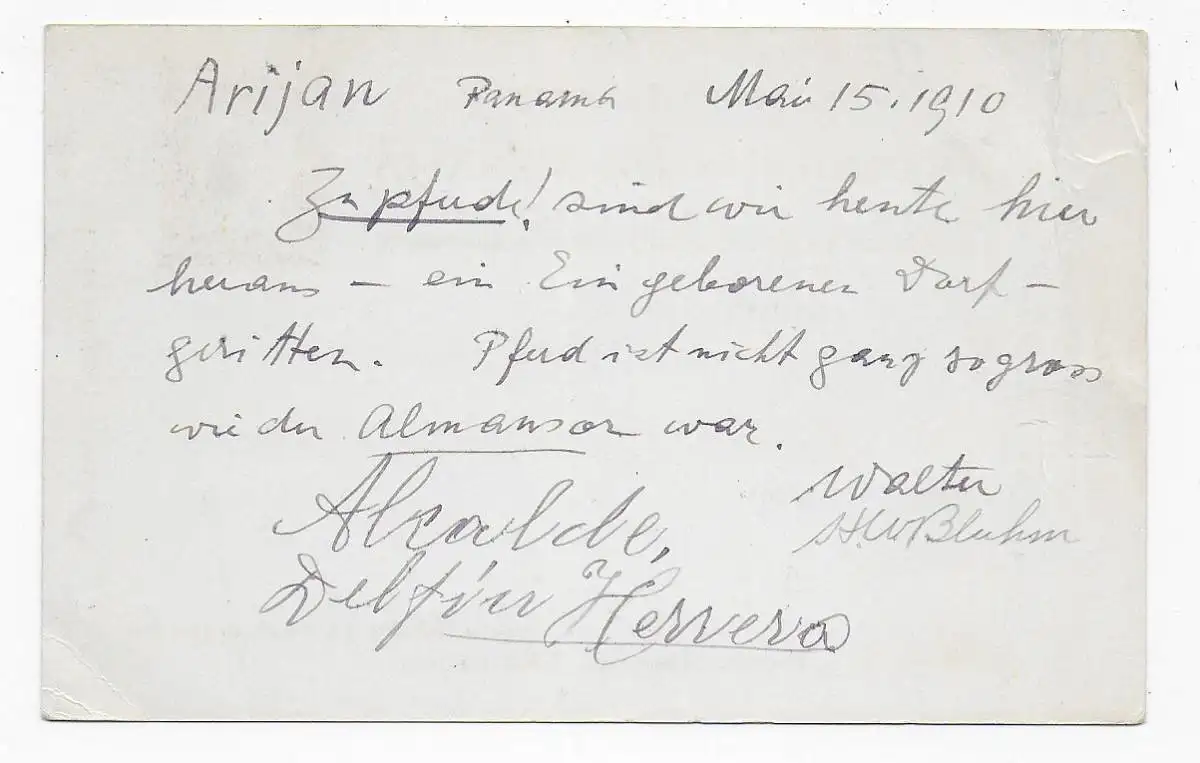 Arijan Panama Mai 15. 1910
Zu pferde! sind wir heute hier
heraus – ein Eingeborenen Dorf –
geritten. Pferd ist nicht ganz so gross
wie der Almansor war.
Walter
H.W. Bluhm
Alcalde,
Delfin Herrera